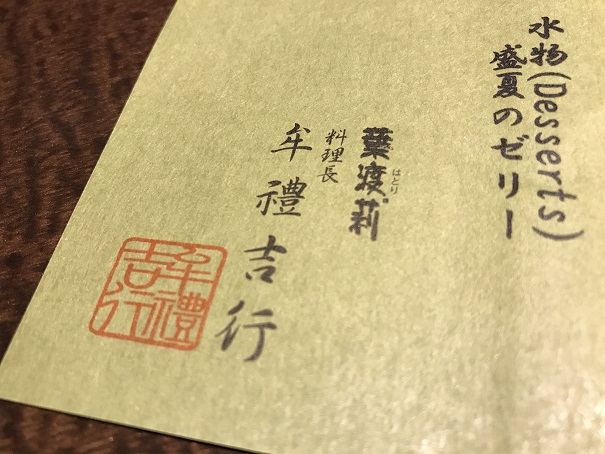 水物(Desserts)
盛夏のゼリー
葉渡莉
はとり
料理長
牟禮吉行
牟禮吉行